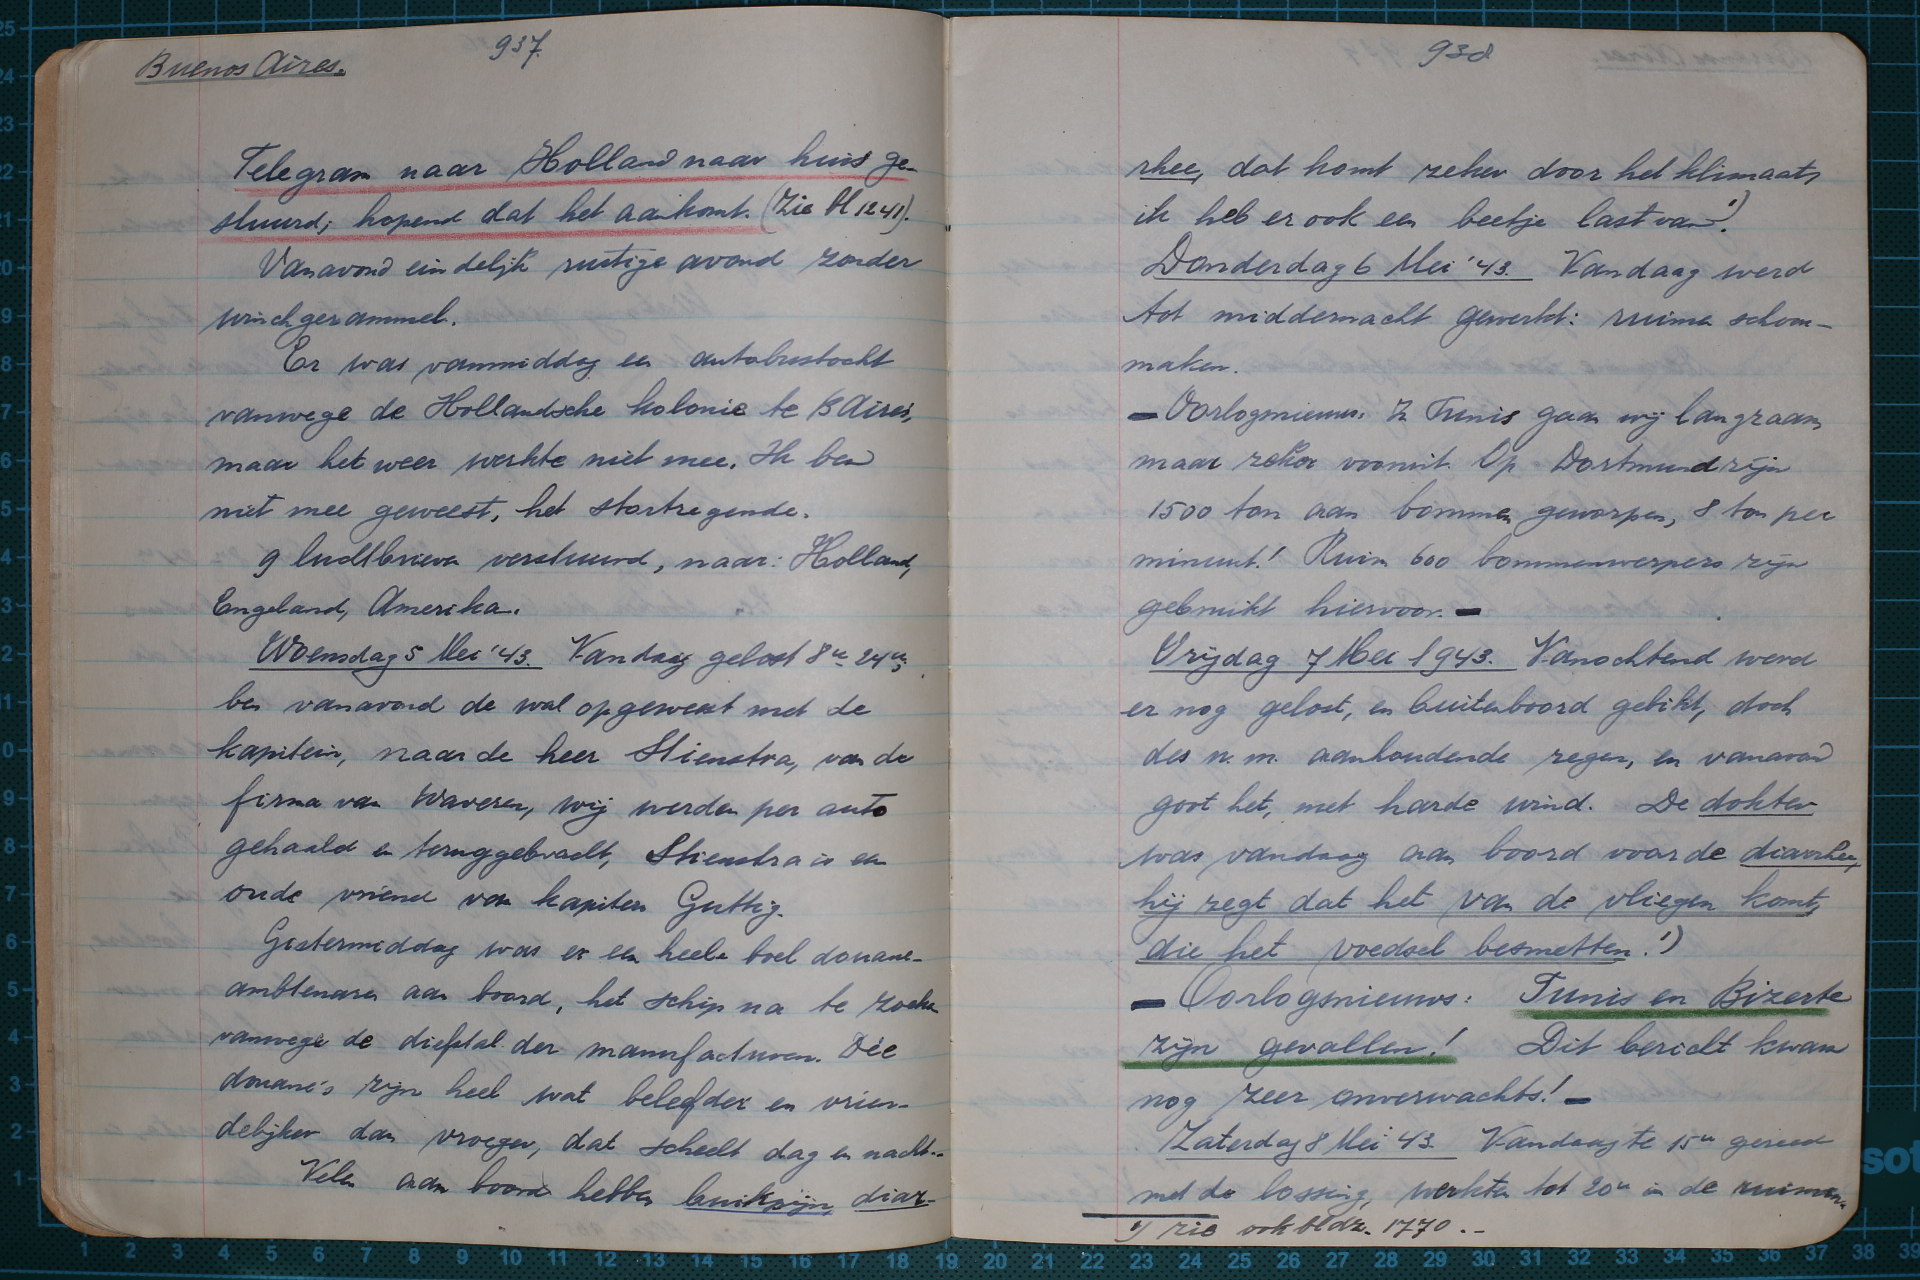 Buenos Aires.
937.
Telegram naar Holland naar huis ge-
stuurd; hopend dat het aankomt. (Zie bl 1241).
Vanavond eindelijk rustige avond zonder
winchgerammel.
Er was vanmiddag een autobustocht
vanwege de Hollandsche kolonie te B Aires,
maar het weer werkte niet mee. Ik ben
niet mee geweest, het stortregende.
9 luchtbrieven verstuurd, naar: Holland,
Engeland, Amerika.
Woensdag 5 Mei '43. Vandaag gelost 8u 24u;
ben vanavond de wal opgeweest met de
kapitein, naar de heer Stienstra, van de
firma van Waveren, wij werden per auto
gehaald en teruggebracht, Stienstra is een
oude vriend van kapitein Guttig.
Gistermiddag was er een heele boel douane-
ambtenaren aan boord, het schip na te zoeken
vanwege de diefstal der manufacturen. Dée
douane's zijn heel wat beleefder en vrien-
delijker dan vroeger, dat scheelt dag en nacht.-
Velen aan boord hebben buikpijn, diar-
938
rhee, dat komt zeker door het klimaat,
ik heb er ook een beetje last van. 1)
Donderdag 6 Mei '43. Vandaag werd
tot middernacht gewerkt: ruimen schoon-
maken.
- Oorlogsnieuws: In Tunis gaan wij langzaam,
maar zeker vooruit. Op Dortmund zijn
1500 ton aan bommen geworpen, 8 ton per
minuut! Ruim 600 bommenwerpers zijn
gebruikt hiervoor. -
Vrijdag 7 Mei 1943. Vanochtend werd
er nog gelost, en buitenboord gebikt, doch
des n.m. aanhoudende regen, en vanavond
goot het, met harde wind. De dokter
was vandaag aan boord voor de diarrhee,
hij zegt dat het van de vliegen komt,
die het voedsel besmetten. 1)
- Oorlogsnieuws: Tunis en Bizerte
zijn gevallen! Dit bericht kwam
nog zeer onverwachts! -
Zaterdag 8 Mei '43. Vandaag te 15u gereed
met de lossing, werkten tot 20u in de ruimen
1) zie ook bldz. 1770. -